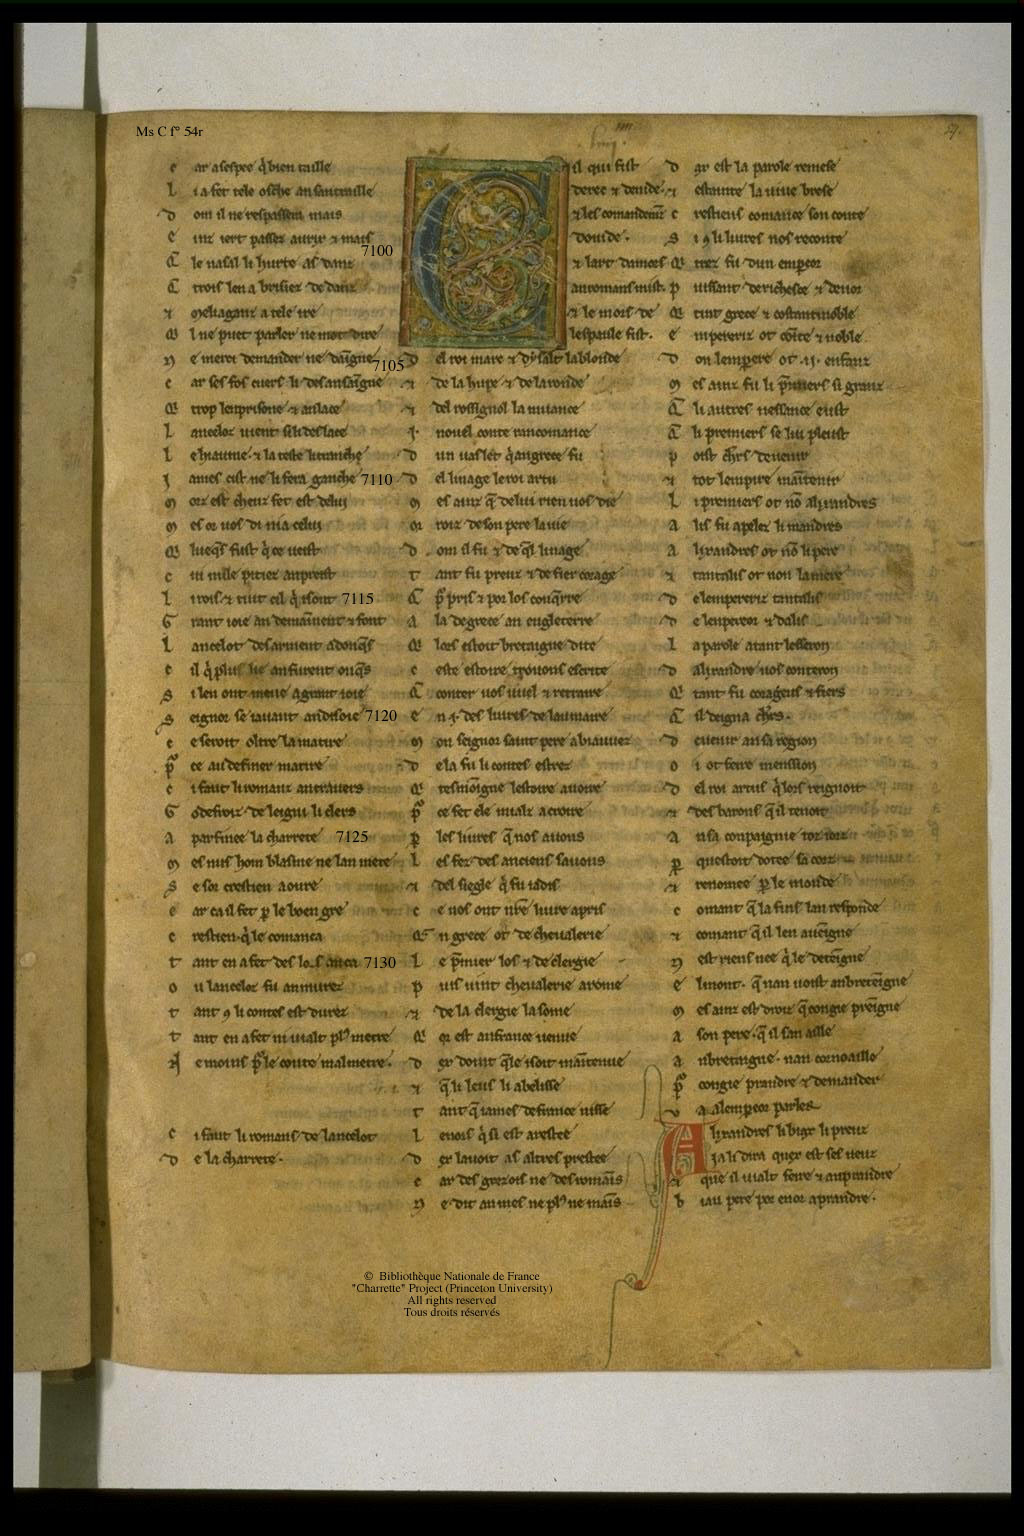 Ms C f° 54r
c ar a sespee q̇ bien taille
L i a fet tele osche an santraille
D om il ne respassera mais
E inz iert passez auriz ⁊ mais
7100
E le nasal li hurte as danz
C trois len a brisiez dedanz
⁊ meliaganz a tele ire
Q l ne puet parler ne mot dire
N e merci demander ne daigne 7105
C ar ses fos cuers li desanseigne
Q trop lenprisone ⁊ anlace
L ancelot uient si li deslace
L e hiaume ⁊ la teste li tranche
J ames cist ne li fera ganche 7110
M orz est cheuz fet est de lui
M es or uos di n'i a celui
Q lueq̄s fust q̇ ce ueist
C ui nule pitiez anpreist
L i rois ⁊ tuit cil q̇ i sont 7115
G rant ioie an demainent ⁊ font
L ancelot desarment adonq̄s
C il q̇ plus lie an furent onq̄s
S i len ont mene a grant ioie
S eignor se iauant an disoie 7120
C e seroit oltre la matire
p̃ ce au definer matire
C i faut li romanz an trauers
G odefroiz de leigni li clers
A parfinee la charrete 7125
M es nus hom blasme ne lan mete
S e sor crestien a oure
C ar ca il fet ꝑ le boen gre
C restien q̇ le comanca
T ant en a fet des lors anca 7130
O u lancelot fu anmurez
T ant ꝯ li contes est durez
T ant en a fet ni uialt pl⁹ metre
N e moins p̃ le conte malmetre.
C i faut li romans de lancelot
D e la charrete.
C il qui fist
derec ⁊ denide.
⁊ les comandemz
douide.
⁊ lart damors
an romans mist.
⁊ le mors de
lespaule fist.
D el roi marc ⁊ dysalt la blonde
⁊ de la hupe ⁊ de laronde
⁊ del rossignol la muance
.J. nouel conte rancomance
D un uaslet q̇ an grece fu
D el linage le roi artu
M es ainz q̄ de lui rien uos die
O rroiz de son pere la uie
D om il fu ⁊ de q̄l linage
T ant fu preuz ⁊ de fier corage
C p̃ pris ⁊ por los conq̄rre
A la de grece an engleterre
Q lors estoit bretaigne dite
C este estoire trouons escrite
C conter uos uuel ⁊ retraire
E n .j. des liures de laumaire
M on seignor saint pere a biauuez
D e la fu li contes estrez
Q tesmoigne lestoire a uoire
p̃ ce fet ele mialz a croire
P les liures q̄ nos auons
L es fez des anciens sauons
⁊ del siegle q̇ fu iadis
C e nos ont nr̄e liure apris
Q n grece ot de cheualerie
L e p̃mier los ⁊ de clergie
P uis uint cheualerie a rome
⁊ de la clergie la some
Q or est an france uenue
D ex doint q̄le i soit maintenue
⁊ q̄ li leus li abelisse
T ant q̄ iames de france nisse
L enors q̇ si est arestee
D ex lauoit as altres prestee
C ar des grezois ne des romains
N e dit an mes ne pl⁹ ne mains
D ax est la parole remese
⁊ estainte la uiue brese
C restiens comance son conte
S i ꝯ li liures nos reconte
Q trez fu dun empeor
P uissant de richesce ⁊ denor
Q tint grece ⁊ costantinoble
E mpereriz ot cointe ⁊ noble
D on lempere ot .ij. enfanz
M es ainz fu li p̃miers si granz
C li autres nessance eust
C li premiers se lui pleust
P oist chr̃s deuenir
⁊ tot lempire maintenir
L i premiers ot nō alixandres
A lis fu apelez li mandres
A lixandres ot nō li pere
⁊ tantalis ot non la mere
D e lempereriz tantalis
D e lenpereor ⁊ dalis
L a parole a tant lesseron
D alixandre uos conteron
Q tant fu corageus ⁊ fiers
C il deigna chr̃s.
D euenir an sa region
O i ot feire mension
D el roi artus q̇ lors reignoit
⁊ des barons q̄ il tenoit
A n sa conpaignie toz iorz
P questoit dotee sa corz
⁊ renomee ꝑ le monde
C omant q̄ la fins lan responde
⁊ comant q̄ il len aueigne
N est riens nee q̇ le deteigne
E l mont. q̄ nan uoist an breteigne
M es ainz est droiz q̄ congie preigne
A son pere. q̄ il san aille
A n bretaigne. nan cornoaille
p̃ congie prandre ⁊ demander
V a a lempeor parler
A lixandres li biax li preuz
J a li dira quex est ses ueuz
⁊ que il uialt feire ⁊ anprandre
B iau pere por enor aprandre.
© Bibliothèque Nationale de France
"Charrette" Project (Princeton University)
All rights reserved
Tous droits réservés